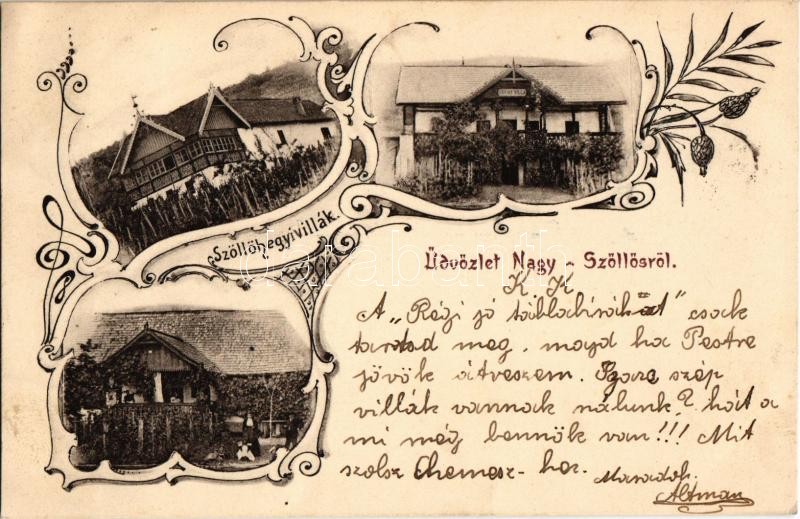 Szöllőhegyivillák.
Üdvözlet Nagy - Szöllösről.
K. K
A „Régi jó táblabírák at" csak
tartsd meg, majd ha Pestre
jövök átveszem. Igaze szép
villák vannak nálunk? hát a
mi még bennök van!!! Mit
szolsz Ehemesz-hez.
Maradok
Altman